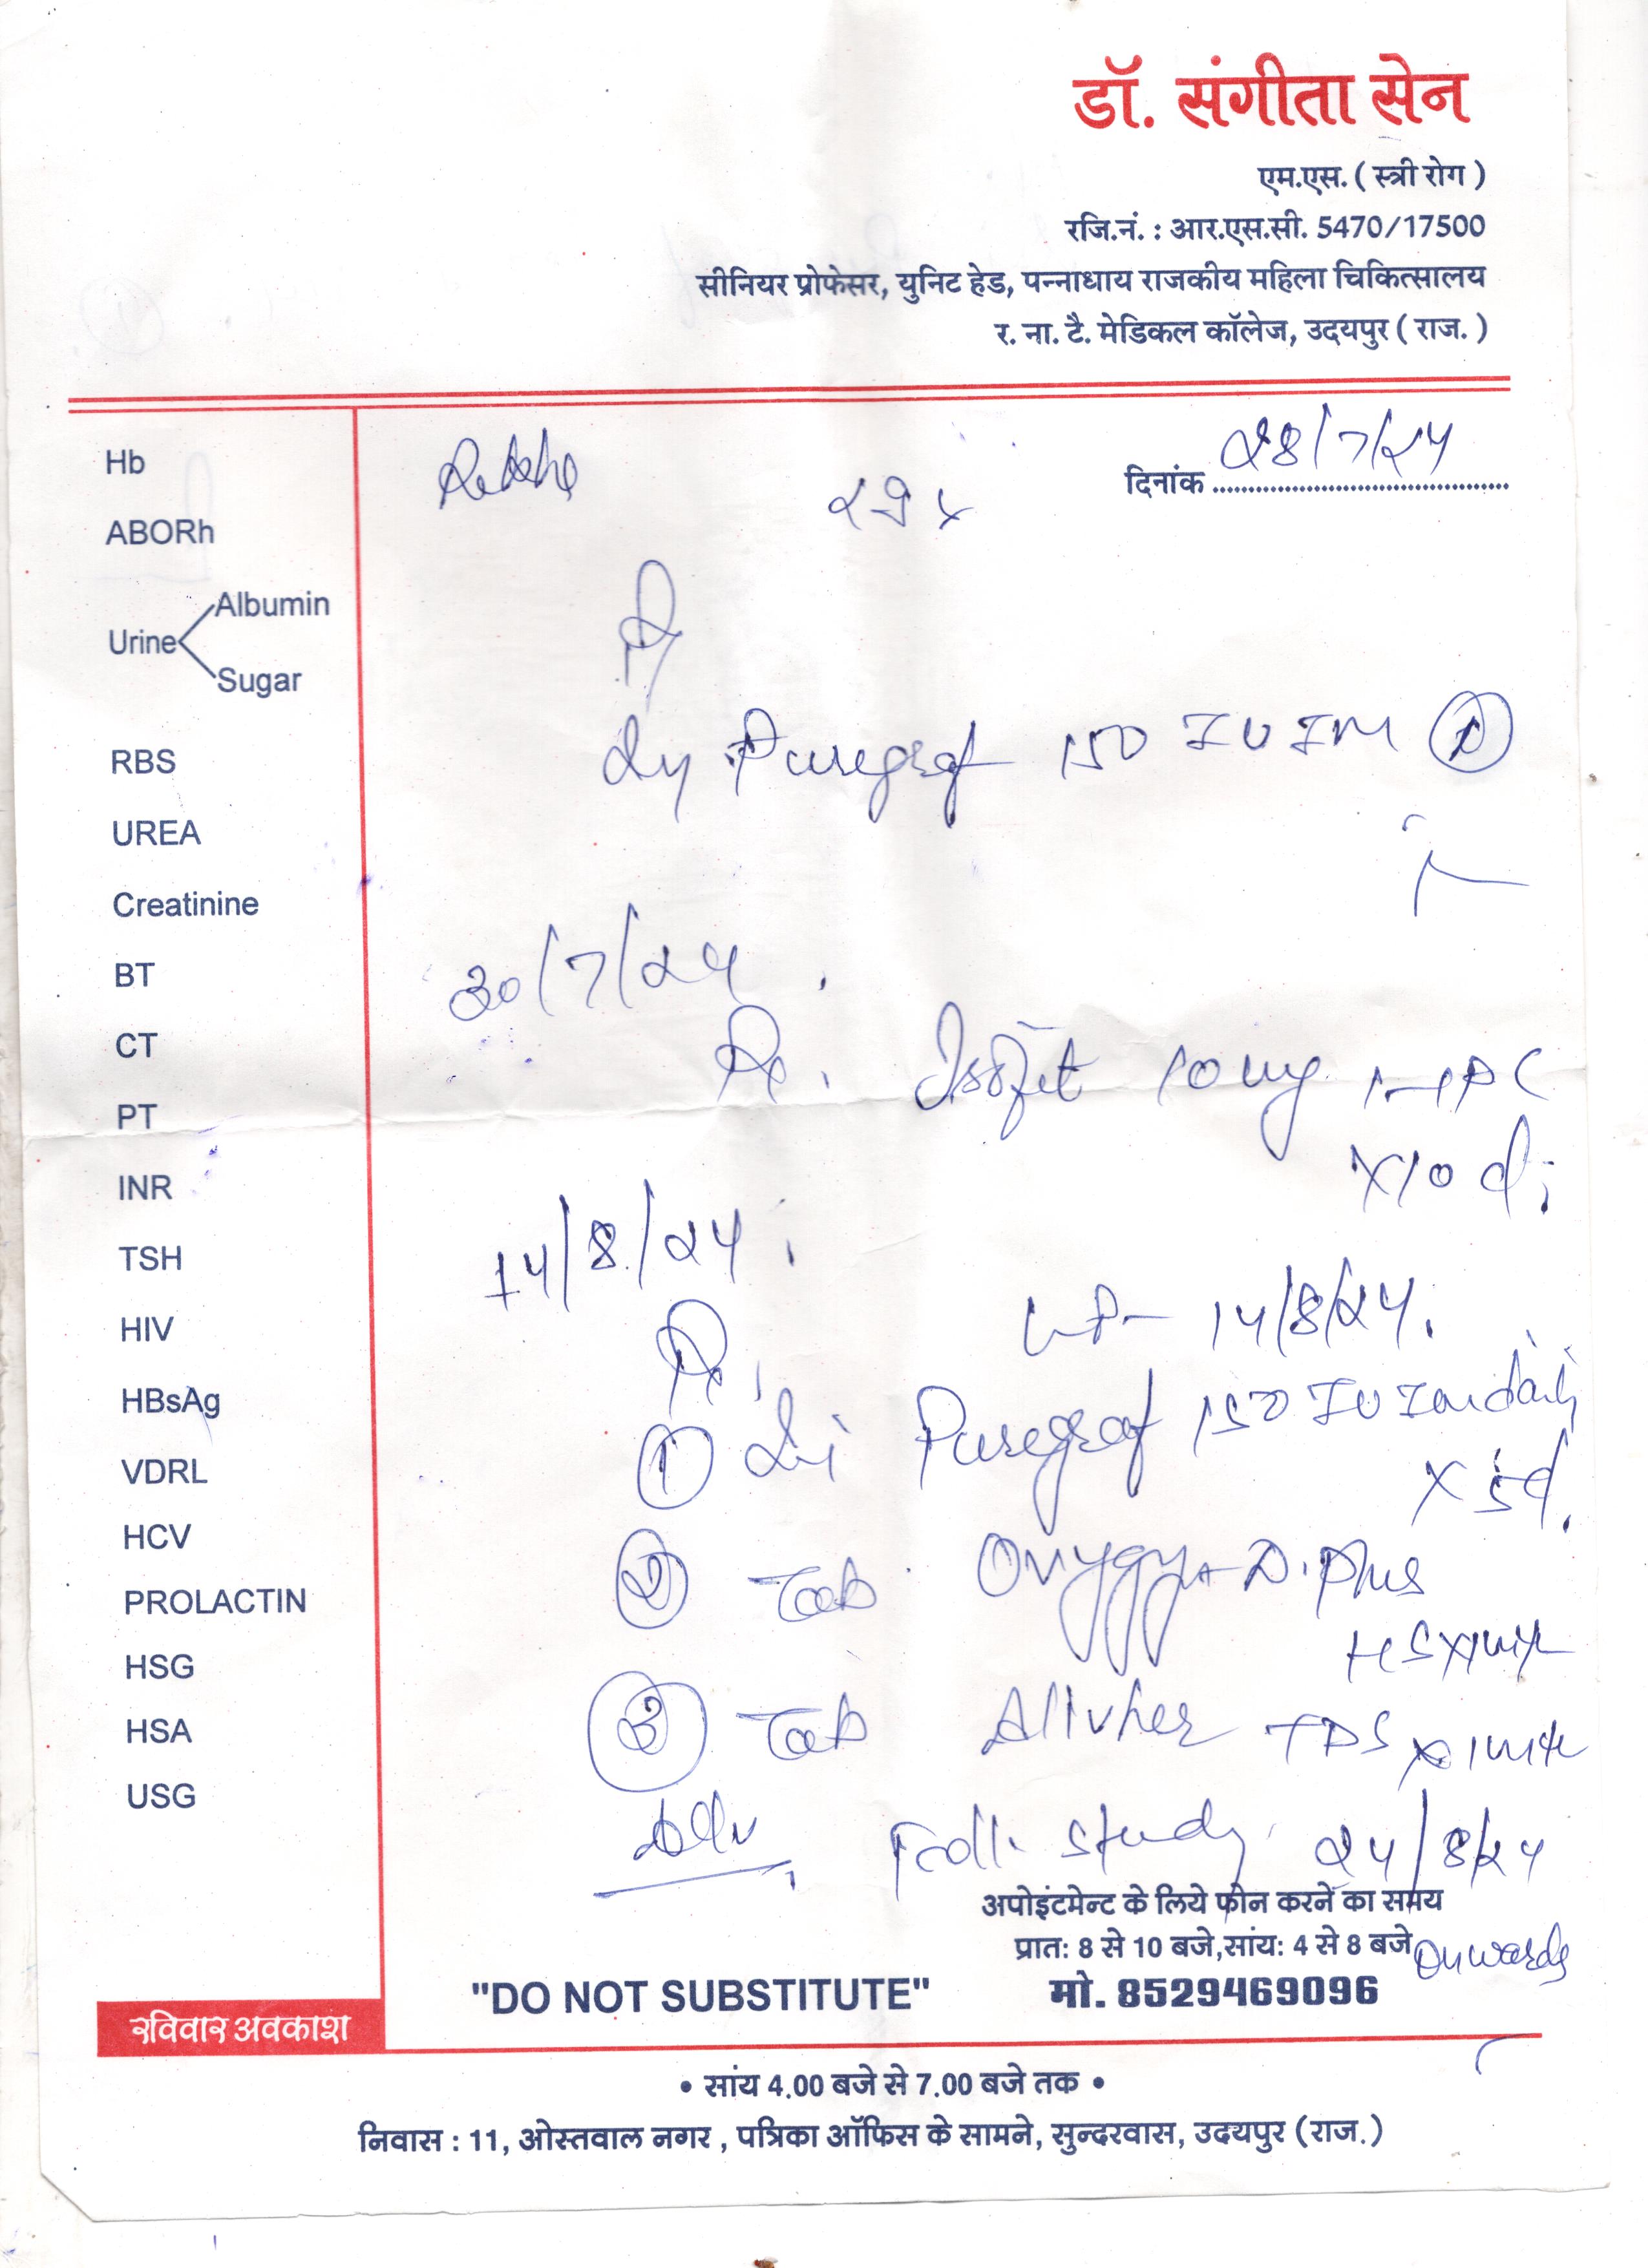 डॉ. संगीता सेन
एम.एस. ( स्त्री रोग )
रजि.नं. : आर.एस.सी. 5470/17500
सीनियर प्रोफेसर, युनिट हेड, पन्नाधाय राजकीय महिला चिकित्सालय
र. ना. टै. मेडिकल कॉलेज, उदयपुर ( राज. )
दिनांक 28/7/24
Rekha
Hb
ABORh
Urine Albumin
Sugar
RBS
UREA
Creatinine
BT
CT
PT
INR
TSH
HIV
HBsAg
VDRL
HCV
PROLACTIN
HSG
HSA
USG
Puregraf 150 IU IM
30/7/24
10 mg
x10 d
14/8/24
14/8/24
① Puregraf 150 IU IM daily
x 5d.
② Tab D. Plus
HS
③ Tab TDS
Adv Foll. study 24/8/24
Onwards
अपोइंटमेन्ट के लिये फोन करने का समय
प्रातः 8 से 10 बजे,सांयः 4 से 8 बजे
"DO NOT SUBSTITUTE" मो. 8529469096
रविवार अवकाश
• सांय 4.00 बजे से 7.00 बजे तक •
निवास : 11, ओस्तवाल नगर , पत्रिका ऑफिस के सामने, सुन्दरवास, उदयपुर (राज.)